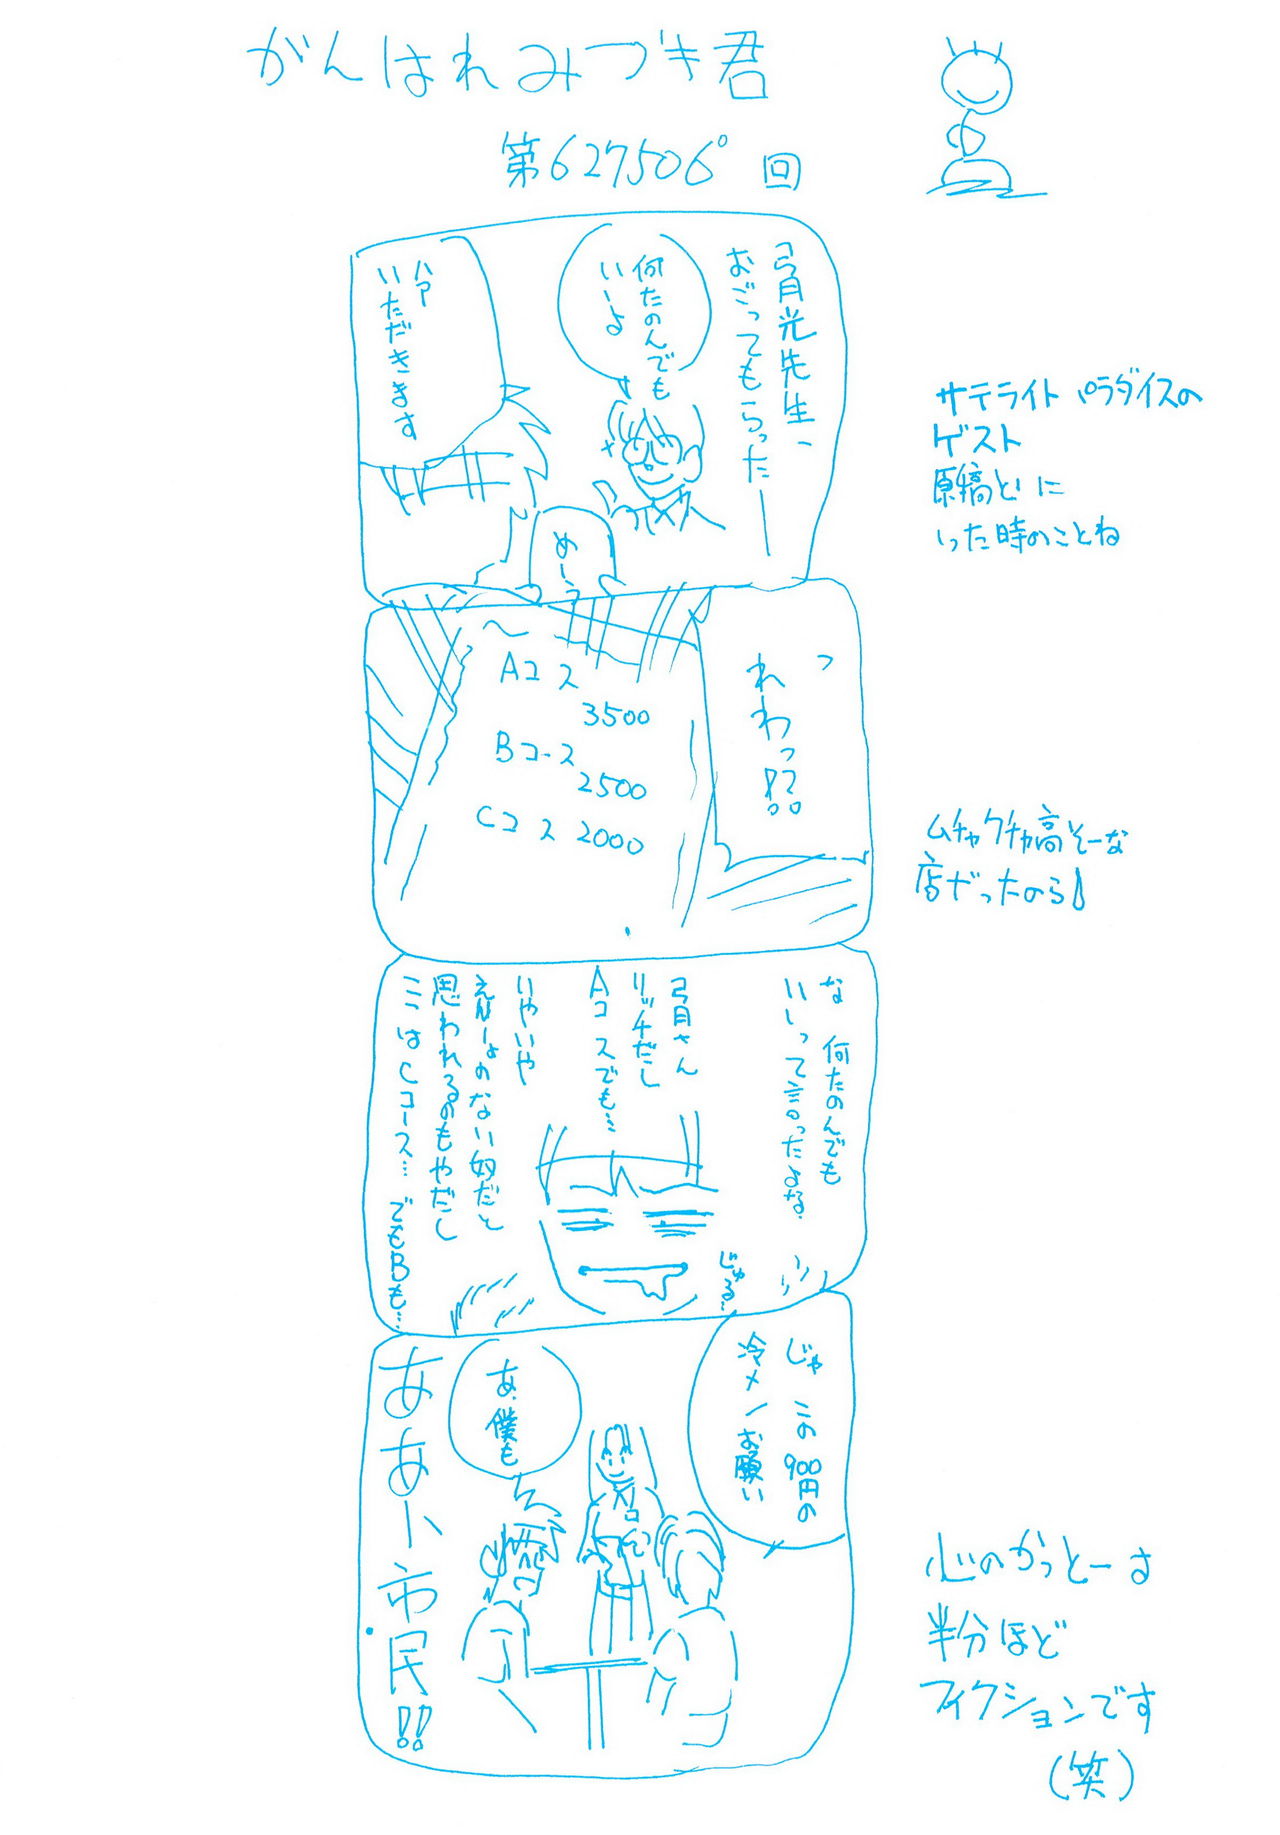 がんはれみづき君
第627506回
弓月光先生、
おごってもらったー
何たのんでも
いーよ
ハアー
いただきます
めーう
サテライトパラダイスの
ゲスト
原稿とりに
いった時のことね
っ
れわっ!?
Aコス
3500
Bコース
2500
Cコス 2000
ムチャクチャ高そーな
店だったのら
な 何たのんでも
いいって言ったよな.
弓月さん
リッチだし
Aコスでも…
いやいや
えんりょのない奴だと
思われるのもやだし
ここはCコース… でもBも…
じゅる…
じゃ この900円の
冷メンお願い
あ、僕も
ああー、市民!!
心のかっとーは
半分ほど
フィクションです
(笑)